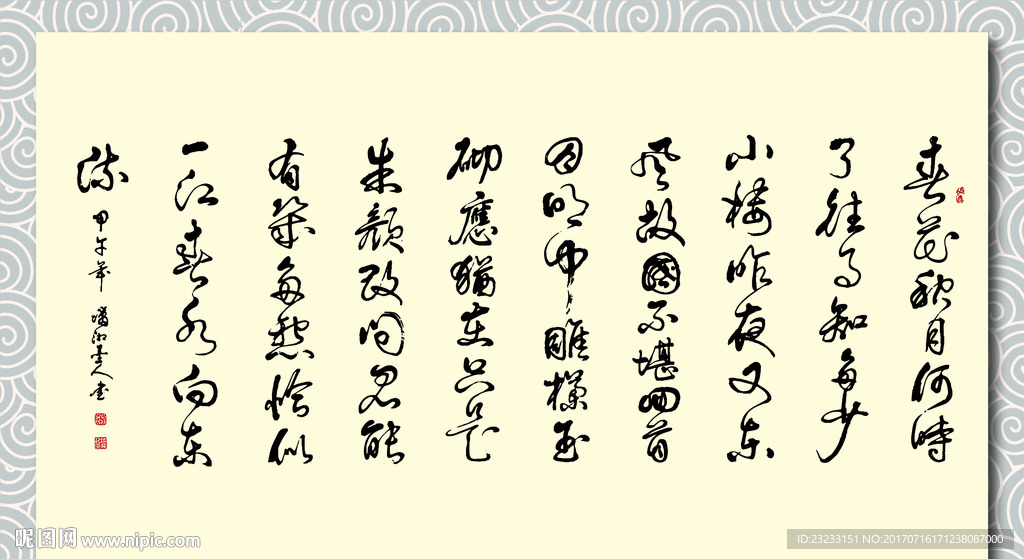 春花秋月何時
了往事知多少
小樓昨夜又東
風故國不堪回首
月明中雕欄玉
砌應猶在只是
朱顏改問君能
有幾多愁恰似
一江春水向東
流
甲午年
人書
昵图网 www.nipic.com
ID:23233151 NO:20170716171238087000